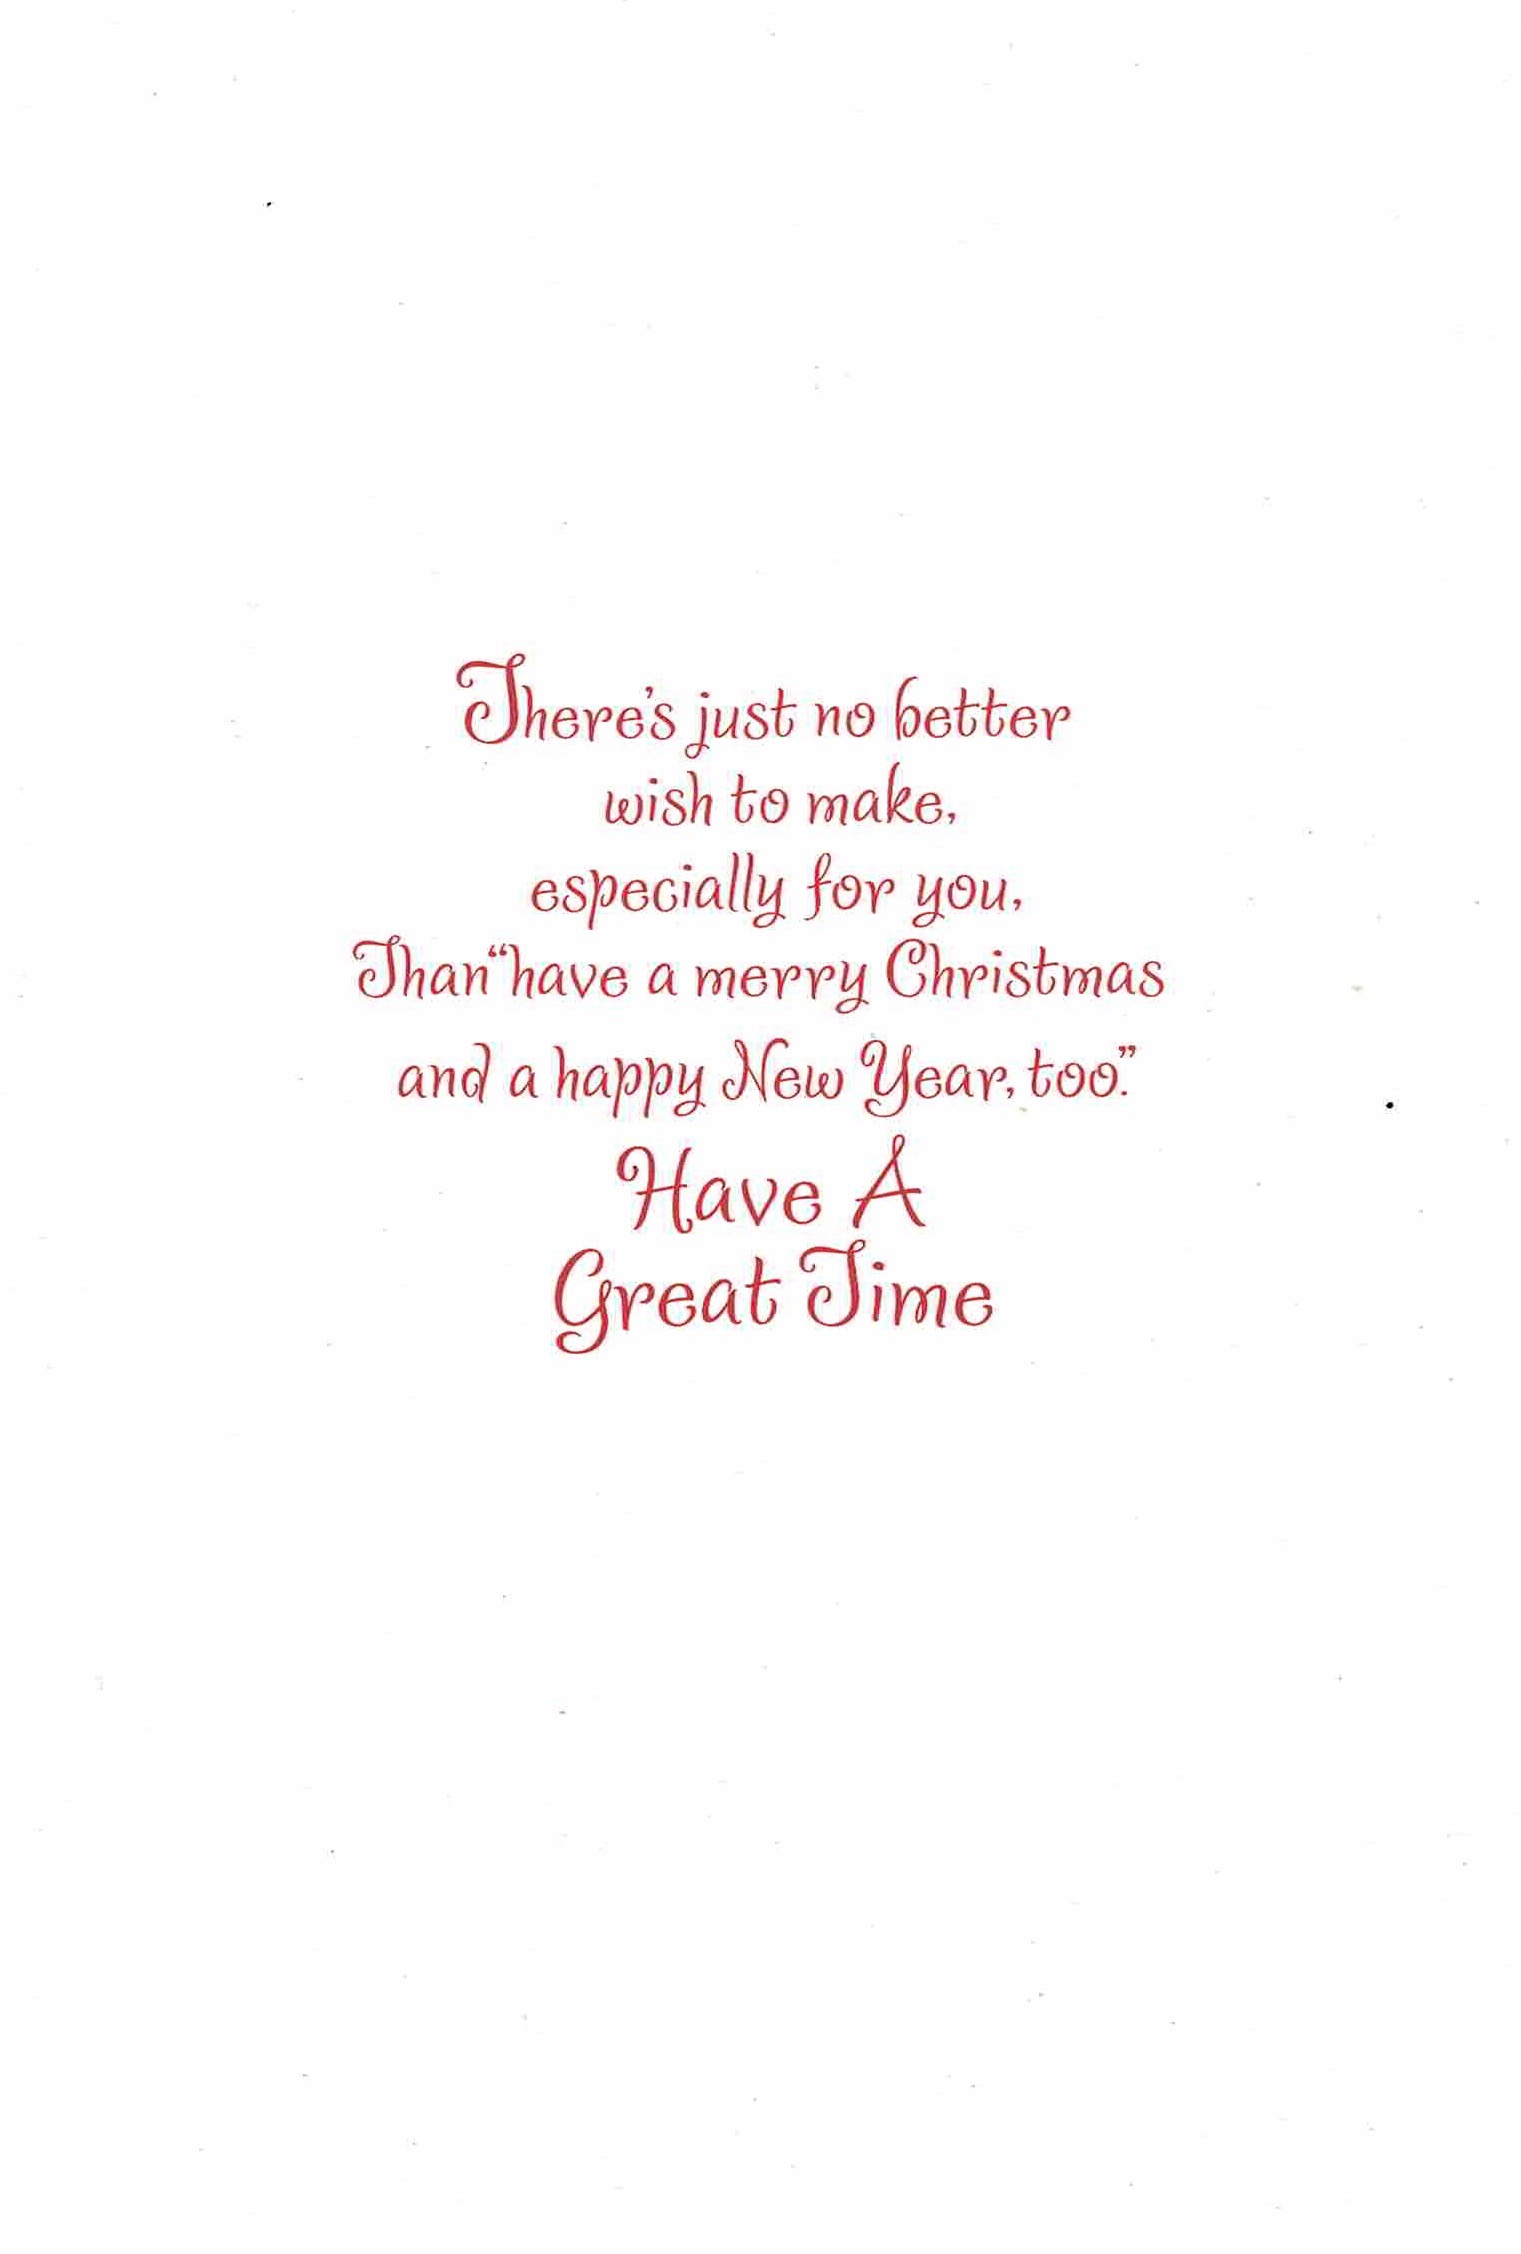 There's just no better
wish to make,
especially for you,
Than “have a merry Christmas
and a happy New Year, too.”
Have A
Great Time